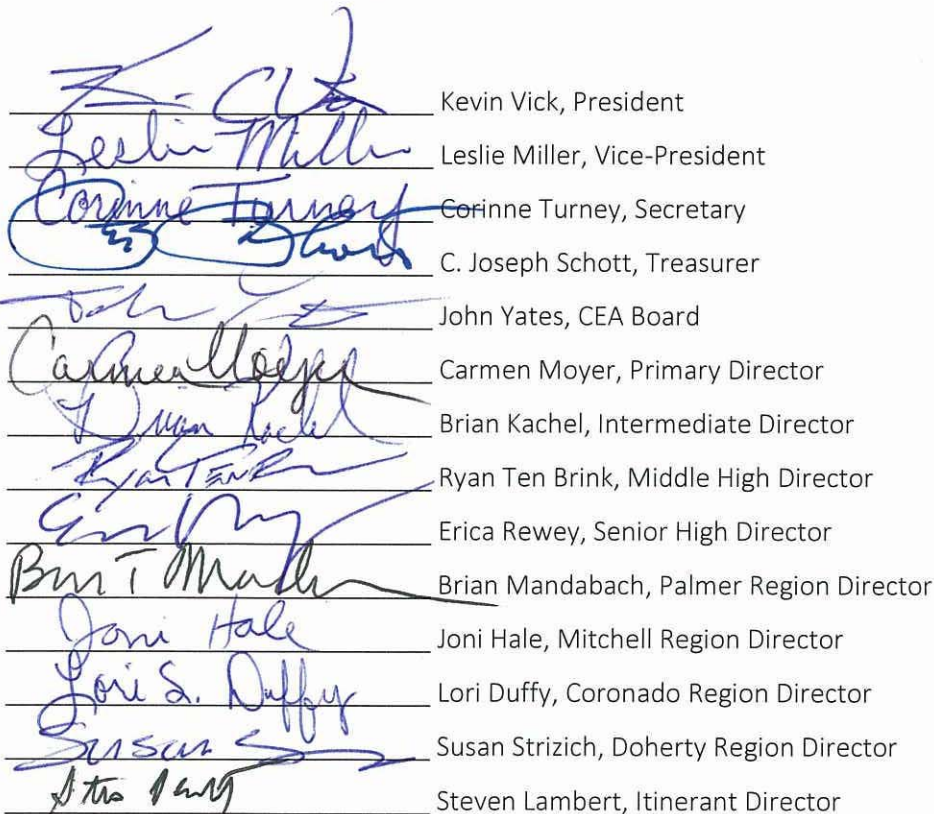 Kevin Vick, President
Leslie Miller Leslie Miller, Vice-President
Corinne Turney Corinne Turney, Secretary
C. Joseph Schott, Treasurer
John Yates, CEA Board
Carmen Moyer Carmen Moyer, Primary Director
Brian Kachel Brian Kachel, Intermediate Director
Ryan Ten Ryan Ten Brink, Middle High Director
Erica Rewey, Senior High Director
Brian Mandabach, Palmer Region Director
Joni Hale Joni Hale, Mitchell Region Director
Lori S. Duffy Lori Duffy, Coronado Region Director
Susan Susan Strizich, Doherty Region Director
Steven Lambert, Itinerant Director